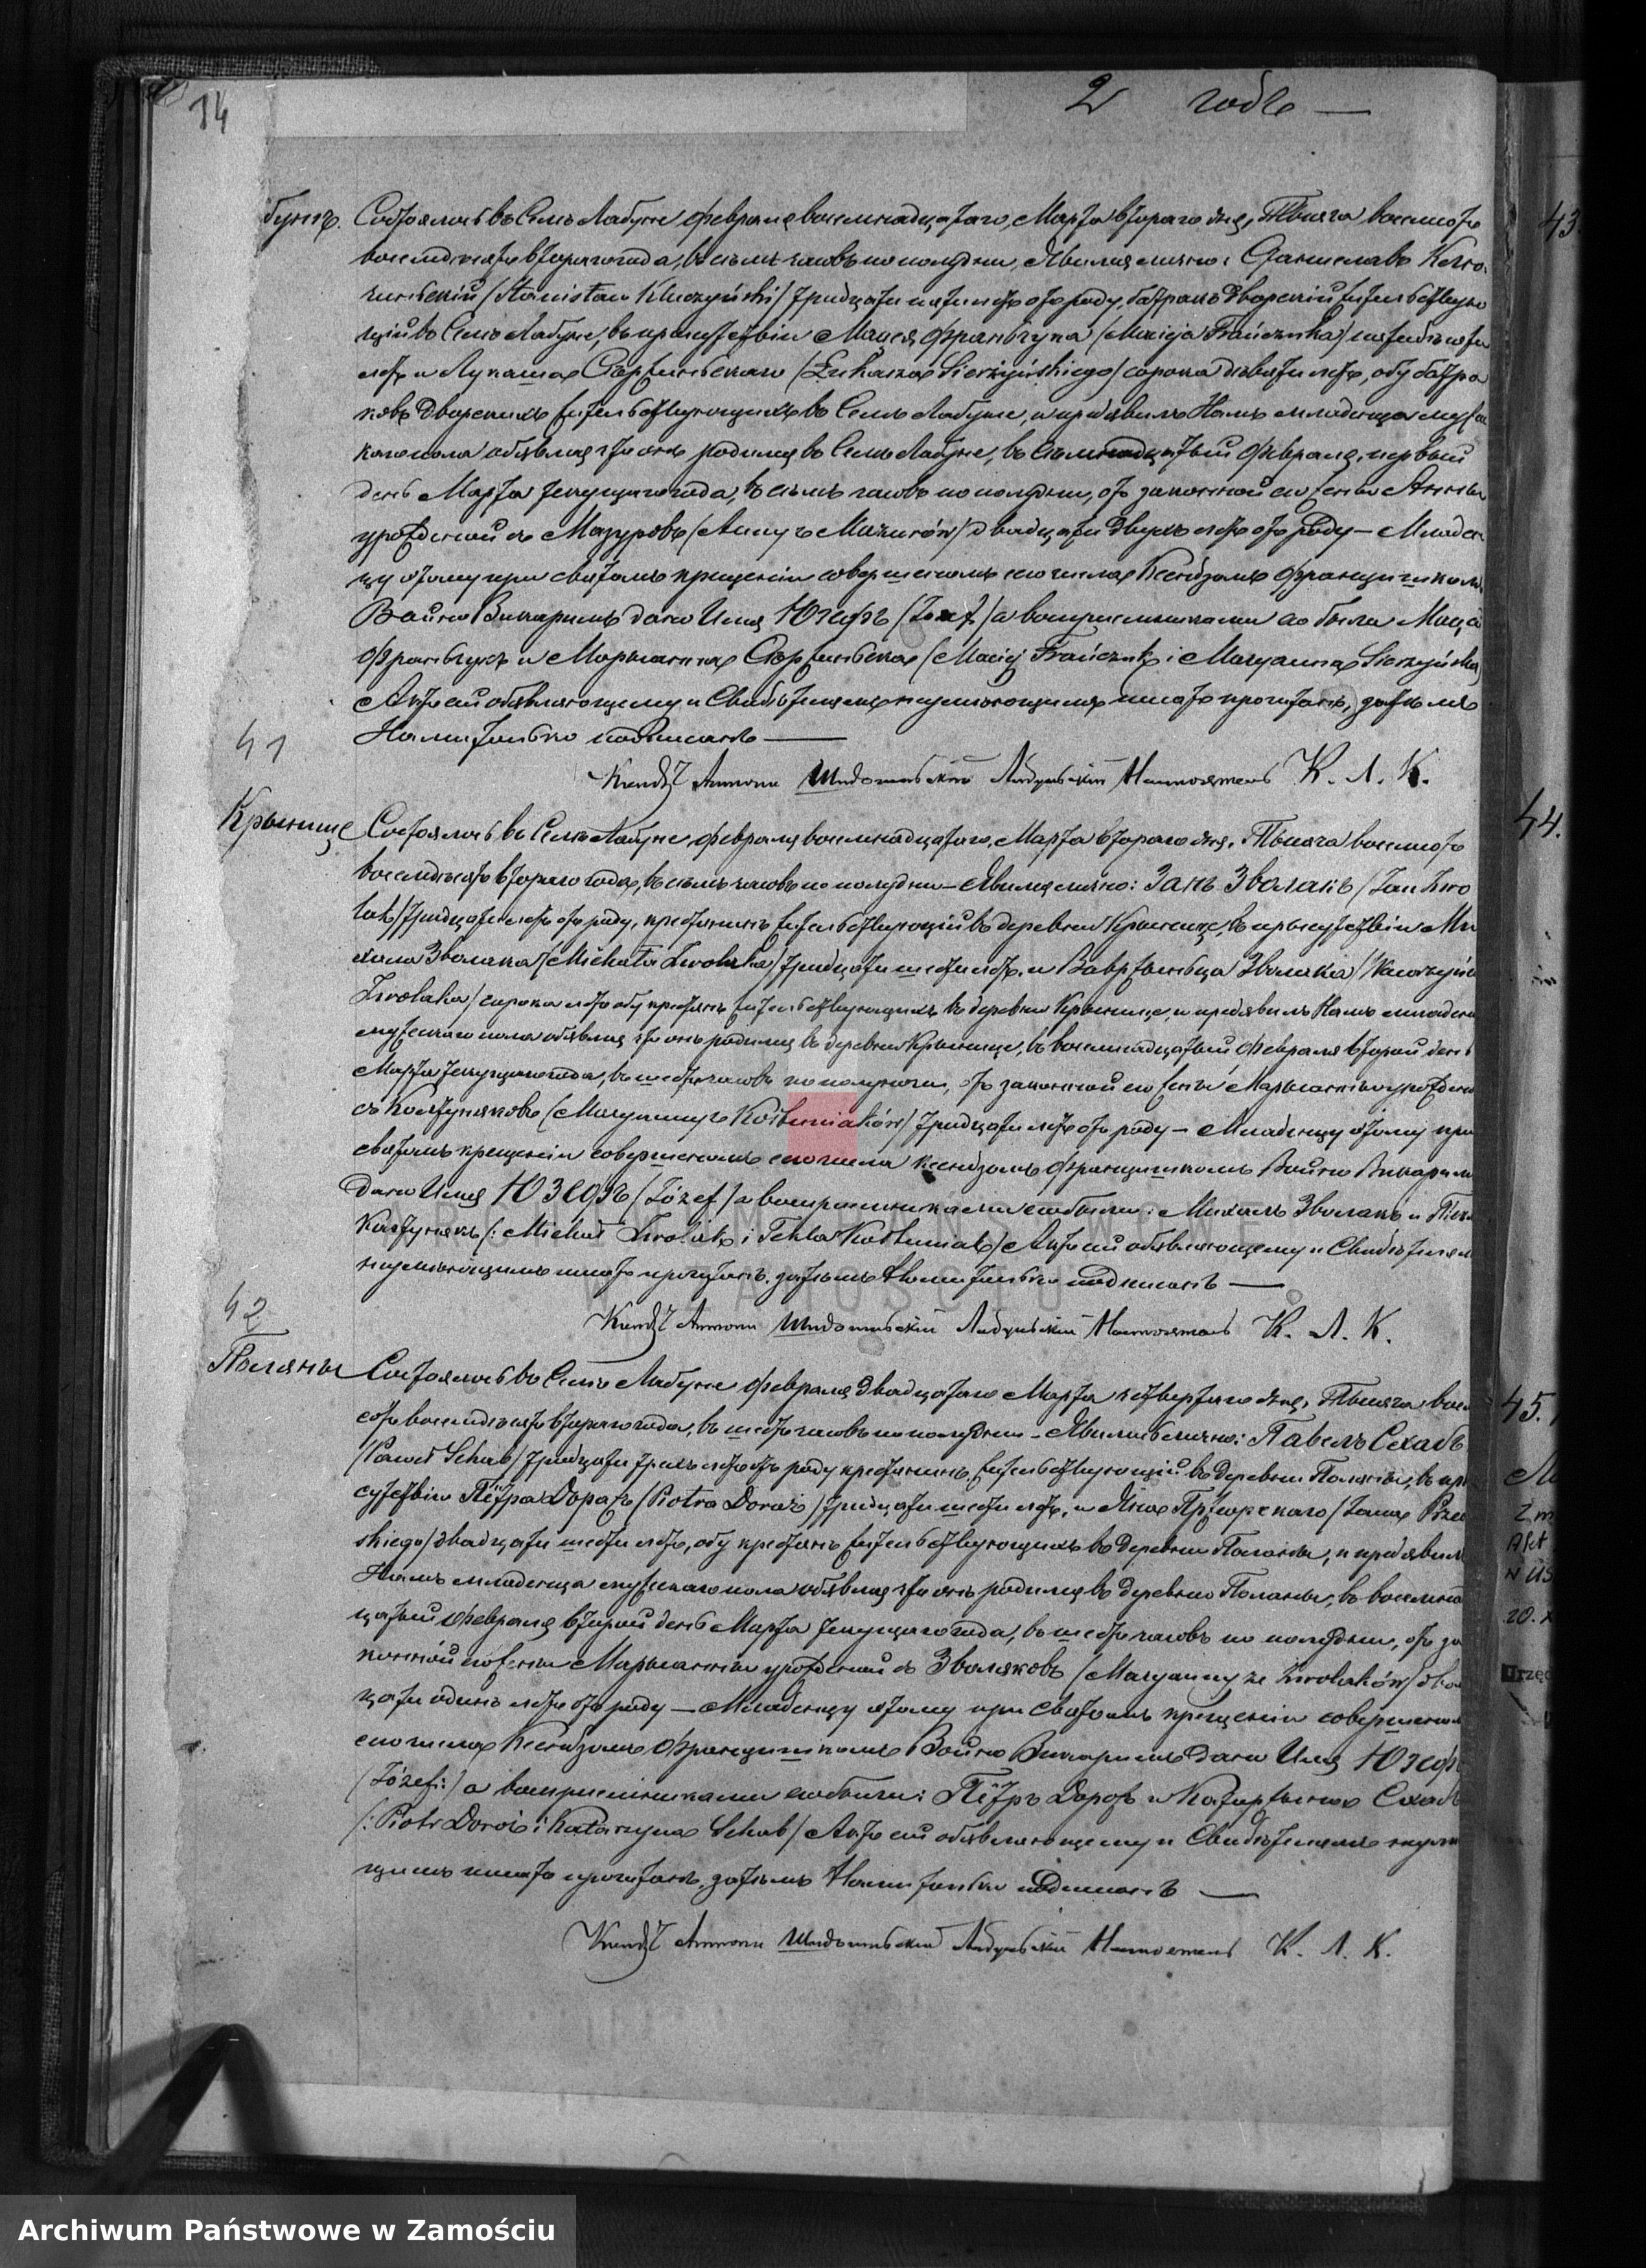 14
2 годъ —
бунѣ. Состоялось въ Селѣ Лабуне Февраля восемнадцатаго, Марта втораго дня, Тысяча восемсотъ
восемдесятъ втораго года, въ семь часовъ по полудни, Явился лично: Станиславъ Ключ-
чинскій /Stanisław Kluczyński/ тридцати пяти летъ отъ роду, батракъ дворскій жительствую
щій въ Селѣ Лабуне, въ присутствіи Мацея Франьчука /Macieja Frańczuka/ пятидесяти
летъ и Лукаша Сержиньскаго /Łukasza Sierżyńskiego/ сорока девяти летъ, обу батра
ковъ дворскихъ жительствующихъ въ Селѣ Лабуне, и предъявилъ Намъ младенца мужс
каго пола объявляя что онъ родился въ Селѣ Лабуне, въ семнадцатый Февраля, первый
день Марта текущаго года, въ семь часовъ по полудни, отъ законной его жены Анны
урожденной съ Мазуровъ /Anny z Mazurów/ двадцати двухъ летъ отъ роду — Младен
цу этому при святомъ крещеніи совершенномъ сего числа Ксендзомъ Францишкомъ
Войно Викаримъ дано Имя Юзефъ /Józef/ а воспріемниками его были Мацѣй
Франьчукъ и Марыанна Сержиньска /Maciej Frańczuk i Maryanna Sierżyńska/
Актъ сей объявляющему и Свидѣтелямъ неумеющимъ писать прочитанъ, затемъ
Нами только подписанъ ———
Ксендзъ Антони Шидловскій Лабуньскій Настоятель К. Л. К.
41
Крынице Состоялось въ Селѣ Лабуне, Февраля восемнадцатаго, Марта втораго дня, Тысяча восемсотъ
восемдесятъ втораго года, въ семь часовъ по полудни — Явился лично: Янъ Зволакъ /Jan Zwo
lak/ тридцати летъ отъ роду, крестянинъ жительствующій въ деревни Крынице, въ присутствіи Ми
хала Зволака /Michała Zwolaka/ тридцати шести летъ, и Вавржыньца Зволака /Wawrzyńca
Zwolaka/ сорока летъ обу крестянъ жительствующихъ въ деревни Крынице, и предъявилъ Намъ младенца
мужескаго пола объявляя что онъ родился въ деревни Крынице, въ восемнадцатый Февраля второй день
Марта текущаго года, въ шесть часовъ по полуночи, отъ законной его жены Марыанны урожденной
съ Костуняковъ /Maryanny z Kostuniaków/ тридцати летъ отъ роду — Младенцу этому при
святомъ крещеніи совершенномъ сего числа Ксендзомъ Францишкомъ Войно Викаримъ
дано Имя Юзефъ /Józef/ а воспріемниками его были: Михалъ Зволакъ и Текля
Костунякъ /: Michał Zwolak i Tekla Kostuniak/ Актъ сей объявляющему и Свидѣтелям
неумеющимъ писать прочитанъ, затемъ Нами только подписанъ ———
Ксендзъ Антони Шидловскій Лабуньскій Настоятель К. Л. К.
42
Поляны Состоялось въ Селѣ Лабуне Февраля двадцатаго Марта четвертаго дня, Тысяча восем
сотъ восемдесятъ втораго года, въ шесть часовъ по полудни — Явился лично: Павелъ Сехабъ
/Paweł Sehab/ тридцати трехъ летъ отъ роду крестянинъ, жительствующій въ деревни Поляны, въ при
сутствіи Пётра Дорозъ /Piotra Doroż/ тридцати шести летъ, и Яна Пржеорскаго /Jana Przeor
skiego/ двадцати шести летъ, обу крестянъ жительствующихъ въ деревни Поляны, и предъявилъ
Намъ младенца мужескаго пола объявляя что онъ родился въ деревни Поляны, въ восемнад
цатый Февраля второй день Марта текущаго года, въ шесть часовъ по полудни, отъ за
конной его жены Марыанны урожденной съ Зволяковъ /Maryanny ze Zwolaków/ двад
цати одинъ летъ отъ роду — Младенцу этому при святомъ крещеніи совершенном
сего числа Ксендзомъ Францишкомъ Войно Викаримъ дано Имя Юзефъ
/Józef:/ а воспріемниками его были: Пётръ Дорозъ и Катаржына Сехабъ
/: Piotr Doroż i Katarzyna Sehab/ Актъ сей объявляющему и Свидѣтелямъ неумею
щимъ писать прочитанъ, затемъ Нами только подписанъ ———
Ксендзъ Антони Шидловскій Лабуньскій Настоятель К. Л. К.
43
44.
45.
Akt
Archiwum Państwowe w Zamościu